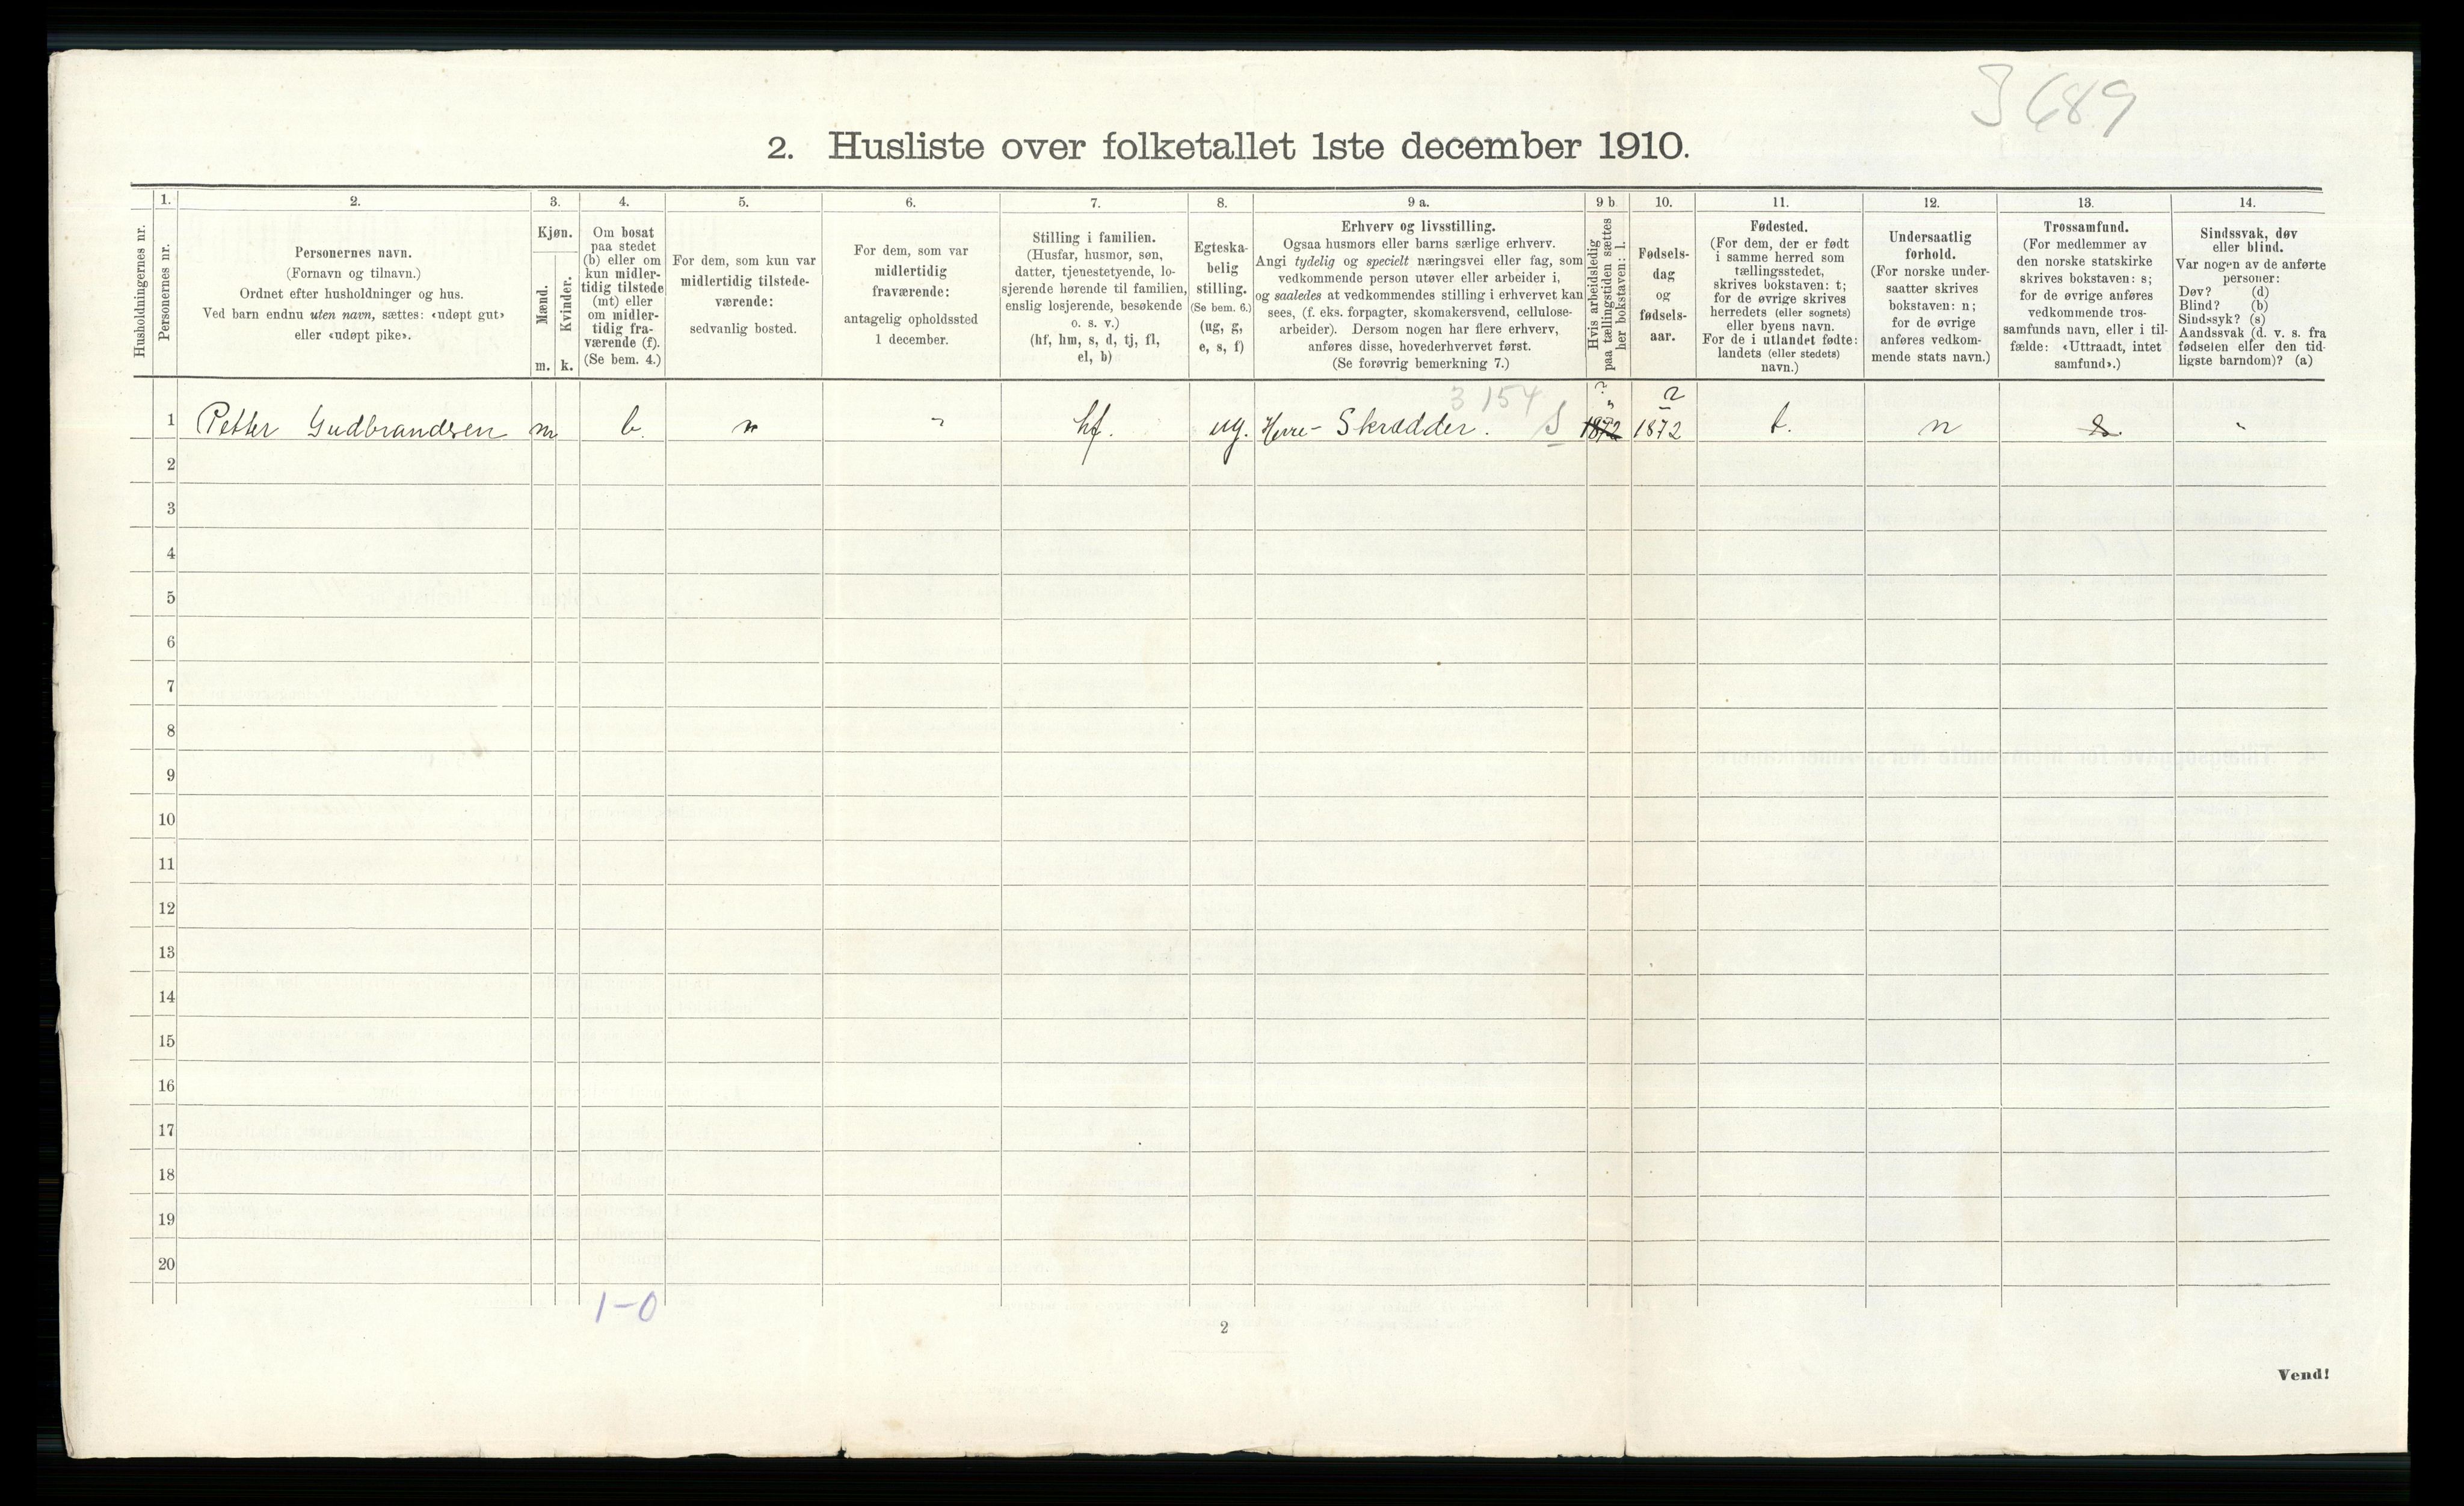 3 689
2. Husliste over folketallet 1ste december 1910.
Husholdningernes nr.
1.
Personernes nr.
2.
Personernes navn.
(Fornavn og tilnavn.)
Ordnet efter husholdninger og hus.
Ved barn endnu uten navn, sættes: «udøpt gut»
eller «udøpt pike».
3.
Kjøn.
Mænd.
Kvinder.
m. k.
4.
Om bosat
paa stedet
(b) eller om
kun midler-
tidig tilstede
(mt) eller
om midler-
tidig fra-
værende (f).
(Se bem. 4.)
5.
For dem, som kun var
midlertidig tilstede-
værende:
sedvanlig bosted.
6.
For dem, som var
midlertidig
fraværende:
antagelig opholdssted
1 december.
7.
Stilling i familien.
(Husfar, husmor, søn,
datter, tjenestetyende, lo-
sjerende hørende til familien,
enslig losjerende, besøkende
o. s. v.)
(hf, hm, s, d, tj, fl,
el, b)
8.
Egteska-
belig
stilling.
(Se bem. 6.)
(ug, g,
e, s, f)
9 a.
Erhverv og livsstilling.
Ogsaa husmors eller barns særlige erhverv.
Angi tydelig og specielt næringsvei eller fag, som
vedkommende person utøver eller arbeider i,
og saaledes at vedkommendes stilling i erhvervet kan
sees, (f. eks. forpagter, skomakersvend, cellulose-
arbeider). Dersom nogen har flere erhverv,
anføres disse, hovederhvervet først.
(Se forøvrig bemerkning 7.)
9 b
Hvis arbeidsledig
paa tællingstiden sættes
her bokstaven: l.
10.
Fødsels-
dag
og
fødsels-
aar.
11.
Fødested.
(For dem, der er født
i samme herred som
tællingsstedet,
skrives bokstaven: t;
for de øvrige skrives
herredets (eller sognets)
eller byens navn.
For de i utlandet fødte:
landets (eller stedets)
navn.)
12.
Undersaatlig
forhold.
(For norske under-
saatter skrives
bokstaven: n;
for de øvrige
anføres vedkom-
mende stats navn.)
13.
Trossamfund.
(For medlemmer av
den norske statskirke
skrives bokstaven: s;
for de øvrige anføres
vedkommende tros-
samfunds navn, eller i til-
fælde: «Uttraadt, intet
samfund».)
14.
Sindssvak, døv
eller blind.
Var nogen av de anførte
personer:
Døv? (d)
Blind? (b)
Sindssyk? (s)
Aandssvak (d. v. s. fra
fødselen eller den tid-
ligste barndom)? (a)
3 154
1 Petter Gudbrandsen m b. hf. ug. Herre-Skrædder. S 1872 1872 t. n s.
2
3
4
5
6
7
8
9
10
11
12
13
14
15
16
17
18
19
20
1-0
2
Vend!